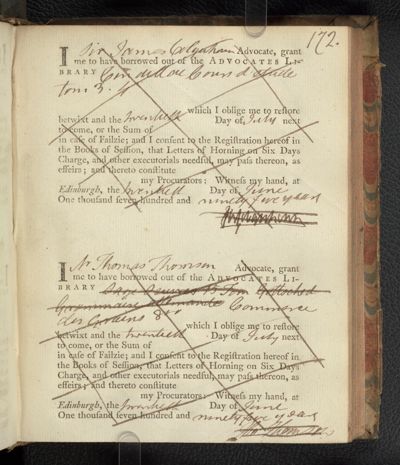 172.
I Sir James Colquhoun Advocate, grant
me to have borrowed out of the ADVOCATES LI-
BRARY Condillac Cours d'Etude
tom 3. 4
which I oblige me to restore
betwixt and the twentieth Day of July next
to come, or the Sum of
in case of Failzie; and I consent to the Registration hereof in
the Books of Session, that Letters of Horning on Six Days
Charge, and other executorials needful, may pass thereon, as
effeirs; and thereto constitute
my Procurators: Witness my hand, at
Edinburgh, the twentieth Day of June
One thousand seven hundred and ninety five years
I Mr Thomas Thomson Advocate, grant
me to have borrowed out of the ADVOCATES LI-
BRARY
Commerce
des Grains 8vo
which I oblige me to restore
betwixt and the twentieth Day of July next
to come, or the Sum of
in case of Failzie; and I consent to the Registration hereof in
the Books of Session, that Letters of Horning on Six Days
Charge, and other executorials needful, may pass thereon, as
effeirs; and thereto constitute
my Procurators: Witness my hand, at
Edinburgh, the twentieth Day of June
One thousand seven hundred and ninety five years